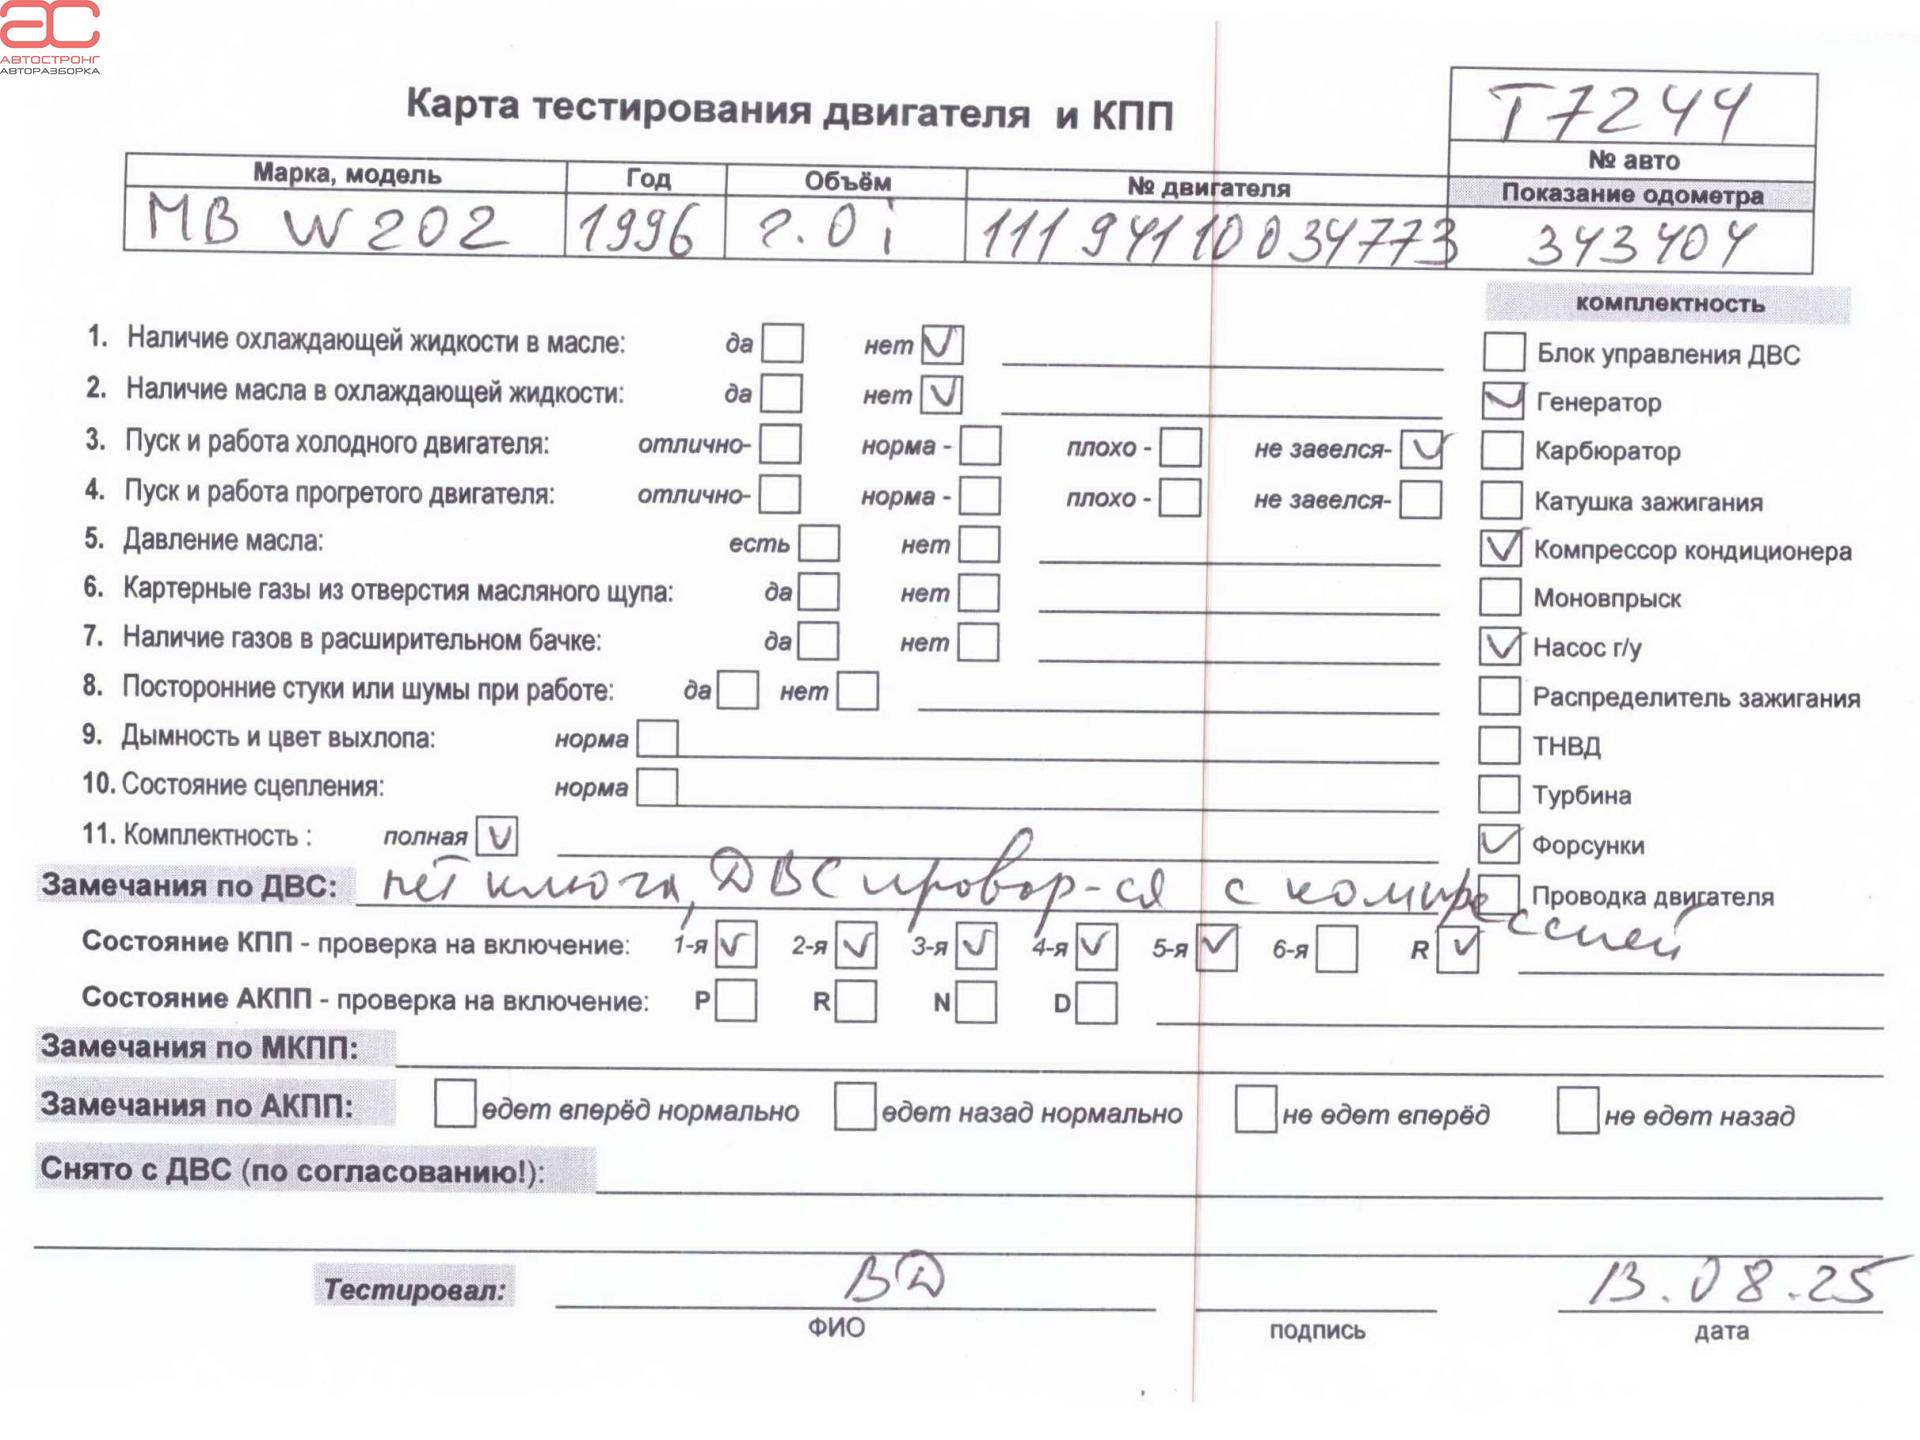 АС
АВТОСТРОНГ
АВТОРАЗБОРКА
Карта тестирования двигателя и КПП
T7244
№ авто
Марка, модель Год Объём № двигателя Показание одометра
MB W202 1996 2.0i 111 941 10 034773 343404
комплектность
1. Наличие охлаждающей жидкости в масле: да нет Блок управления ДВС
2. Наличие масла в охлаждающей жидкости: да нет Генератор
3. Пуск и работа холодного двигателя: отлично- норма - плохо - не завелся- Карбюратор
4. Пуск и работа прогретого двигателя: отлично- норма - плохо - не завелся- Катушка зажигания
5. Давление масла: есть нет Компрессор кондиционера
6. Картерные газы из отверстия масляного щупа: да нет Моновпрыск
7. Наличие газов в расширительном бачке: да нет Насос г/у
8. Посторонние стуки или шумы при работе: да нет Распределитель зажигания
9. Дымность и цвет выхлопа: норма ТНВД
10. Состояние сцепления: норма Турбина
11. Комплектность : полная Форсунки
Замечания по ДВС: нет ключа, ДВС провор-ся с компрессией Проводка двигателя
Состояние КПП - проверка на включение: 1-я 2-я 3-я 4-я 5-я 6-я R
Состояние АКПП - проверка на включение: P R N D
Замечания по МКПП:
Замечания по АКПП: едет вперёд нормально едет назад нормально не едет вперёд не едет назад
Снято с ДВС (по согласованию!):
Тестировал: ВД 13.08.25
ФИО подпись дата